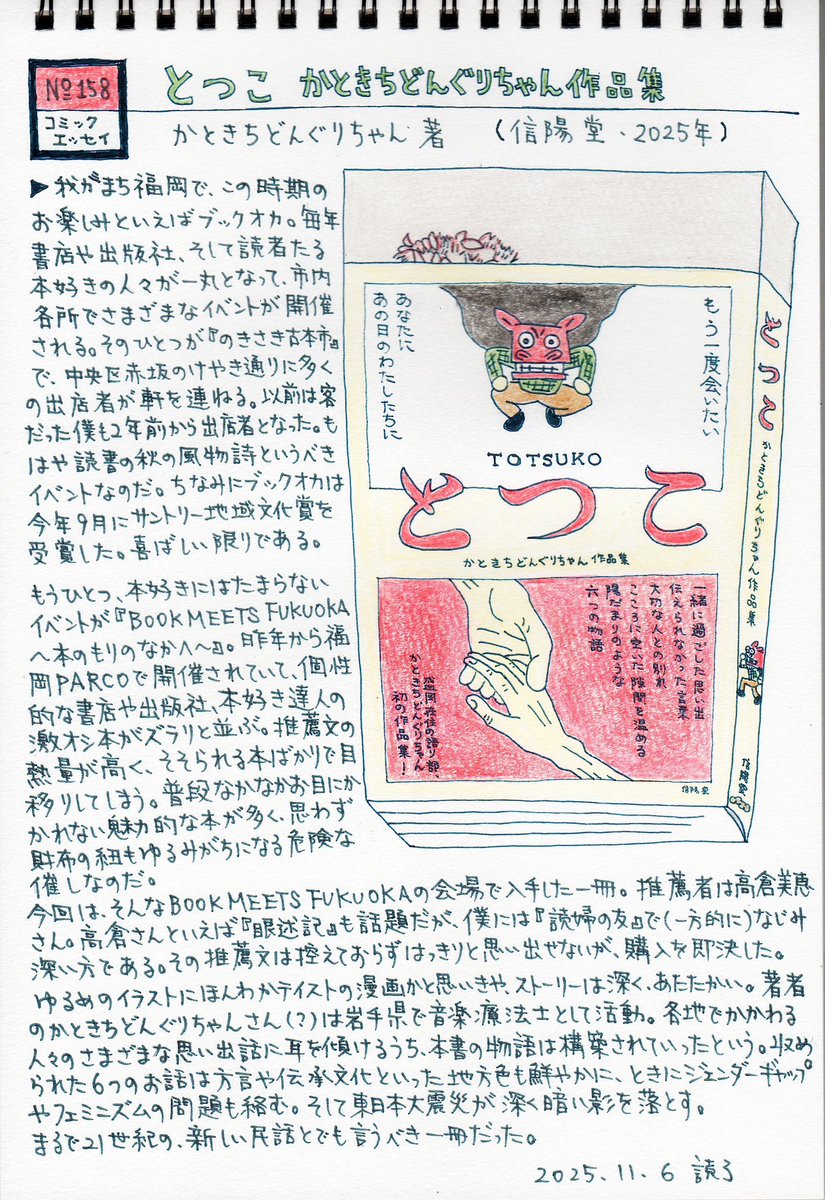 No158
コミック
エッセイ
とつこ かときちどんぐりちゃん作品集
かときちどんぐりちゃん 著 (信陽堂・2025年)
▶我がまち福岡で、この時期の
お楽しみといえばブックオカ。毎年
書店や出版社、そして読者たる
本好きの人々が一丸となって、市内
各所でさまざまなイベントが開催
される。そのひとつが『のきさき古本市』
で、中央区赤坂のけやき通りに多く
の出店者が軒を連ねる。以前は客
だった僕も2年前から出店者となった。も
はや読書の秋の風物詩というべき
イベントなのだ。ちなみにブックオカは
今年9月にサントリー地域文化賞を
受賞した。喜ばしい限りである。
もうひとつ、本好きにはたまらない
イベントが『BOOK MEETS FUKUOKA
〜本のもりのなかへ〜』。昨年から福
岡PARCOで開催されていて、個性
的な書店や出版社、本好き達人の
激オシ本がズラリと並ぶ。推薦文の
熱量が高く、そそられる本ばかりで目
移りしてしまう。普段なかなかお目にか
かれない魅力的な本が多く、思わず
財布の紐もゆるみがちになる危険な
催しなのだ。
今回は、そんなBOOK MEETS FUKUOKAの会場で入手した一冊。推薦者は高倉美恵
さん。高倉さんといえば『眼述記』も話題だが、僕には『読婦の友』で(一方的に)なじみ
深い方である。その推薦文は控えておらずはっきりと思い出せないが、購入を即決した。
ゆるめのイラストにほんわかテイストの漫画かと思いきや、ストーリーは深く、あたたかい。著者
のかときちどんぐりちゃんさん(?)は岩手県で音楽療法士として活動。各地でかかわる
人々のさまざまな思い出話に耳を傾けるうち、本書の物語は構築されていったという。収め
られた6つのお話は方言や伝承文化といった地方色も鮮やかに、ときにジェンダーギャップ
やフェミニズムの問題も絡む。そして東日本大震災が深く暗い影を落とす。
まるで21世紀の、新しい民話とでも言うべき一冊だった。
2025.11.6 読了
もう一度会いたい
あなたに
あの日のわたしたちに
TOTSUKO
とつこ
かときちどんぐりちゃん作品集
一緒に過ごした思い出
伝えられなかった言葉
大切な人との別れ
こころに空いた隙間を温める
陽だまりのような
六つの物語
盛岡在住の語り部、
かときちどんぐりちゃん
初の作品集!
信陽堂
とつこ
かときちどんぐりちゃん作品集
信陽堂